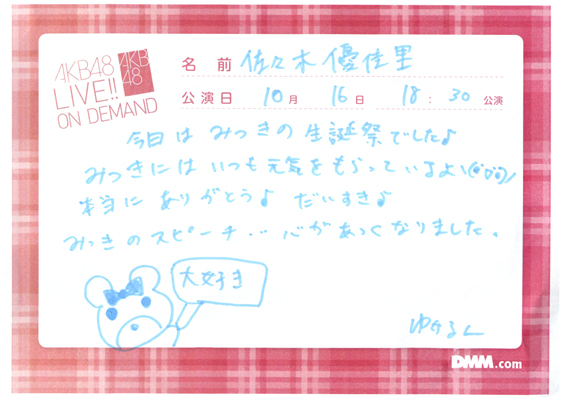 AKB48
LIVE!!
ON DEMAND
AKB
48
名前 佐々木優佳里
公演日 10月 16日 18:30公演
今日は みつきの 生誕祭でしたよ
みつきには いつも 元気をもらっているよ\(^o^)/
本当に ありがとうよ だいすきよ
みつきのスピーチ... 心があつくなりました。
大好き
DMM.com